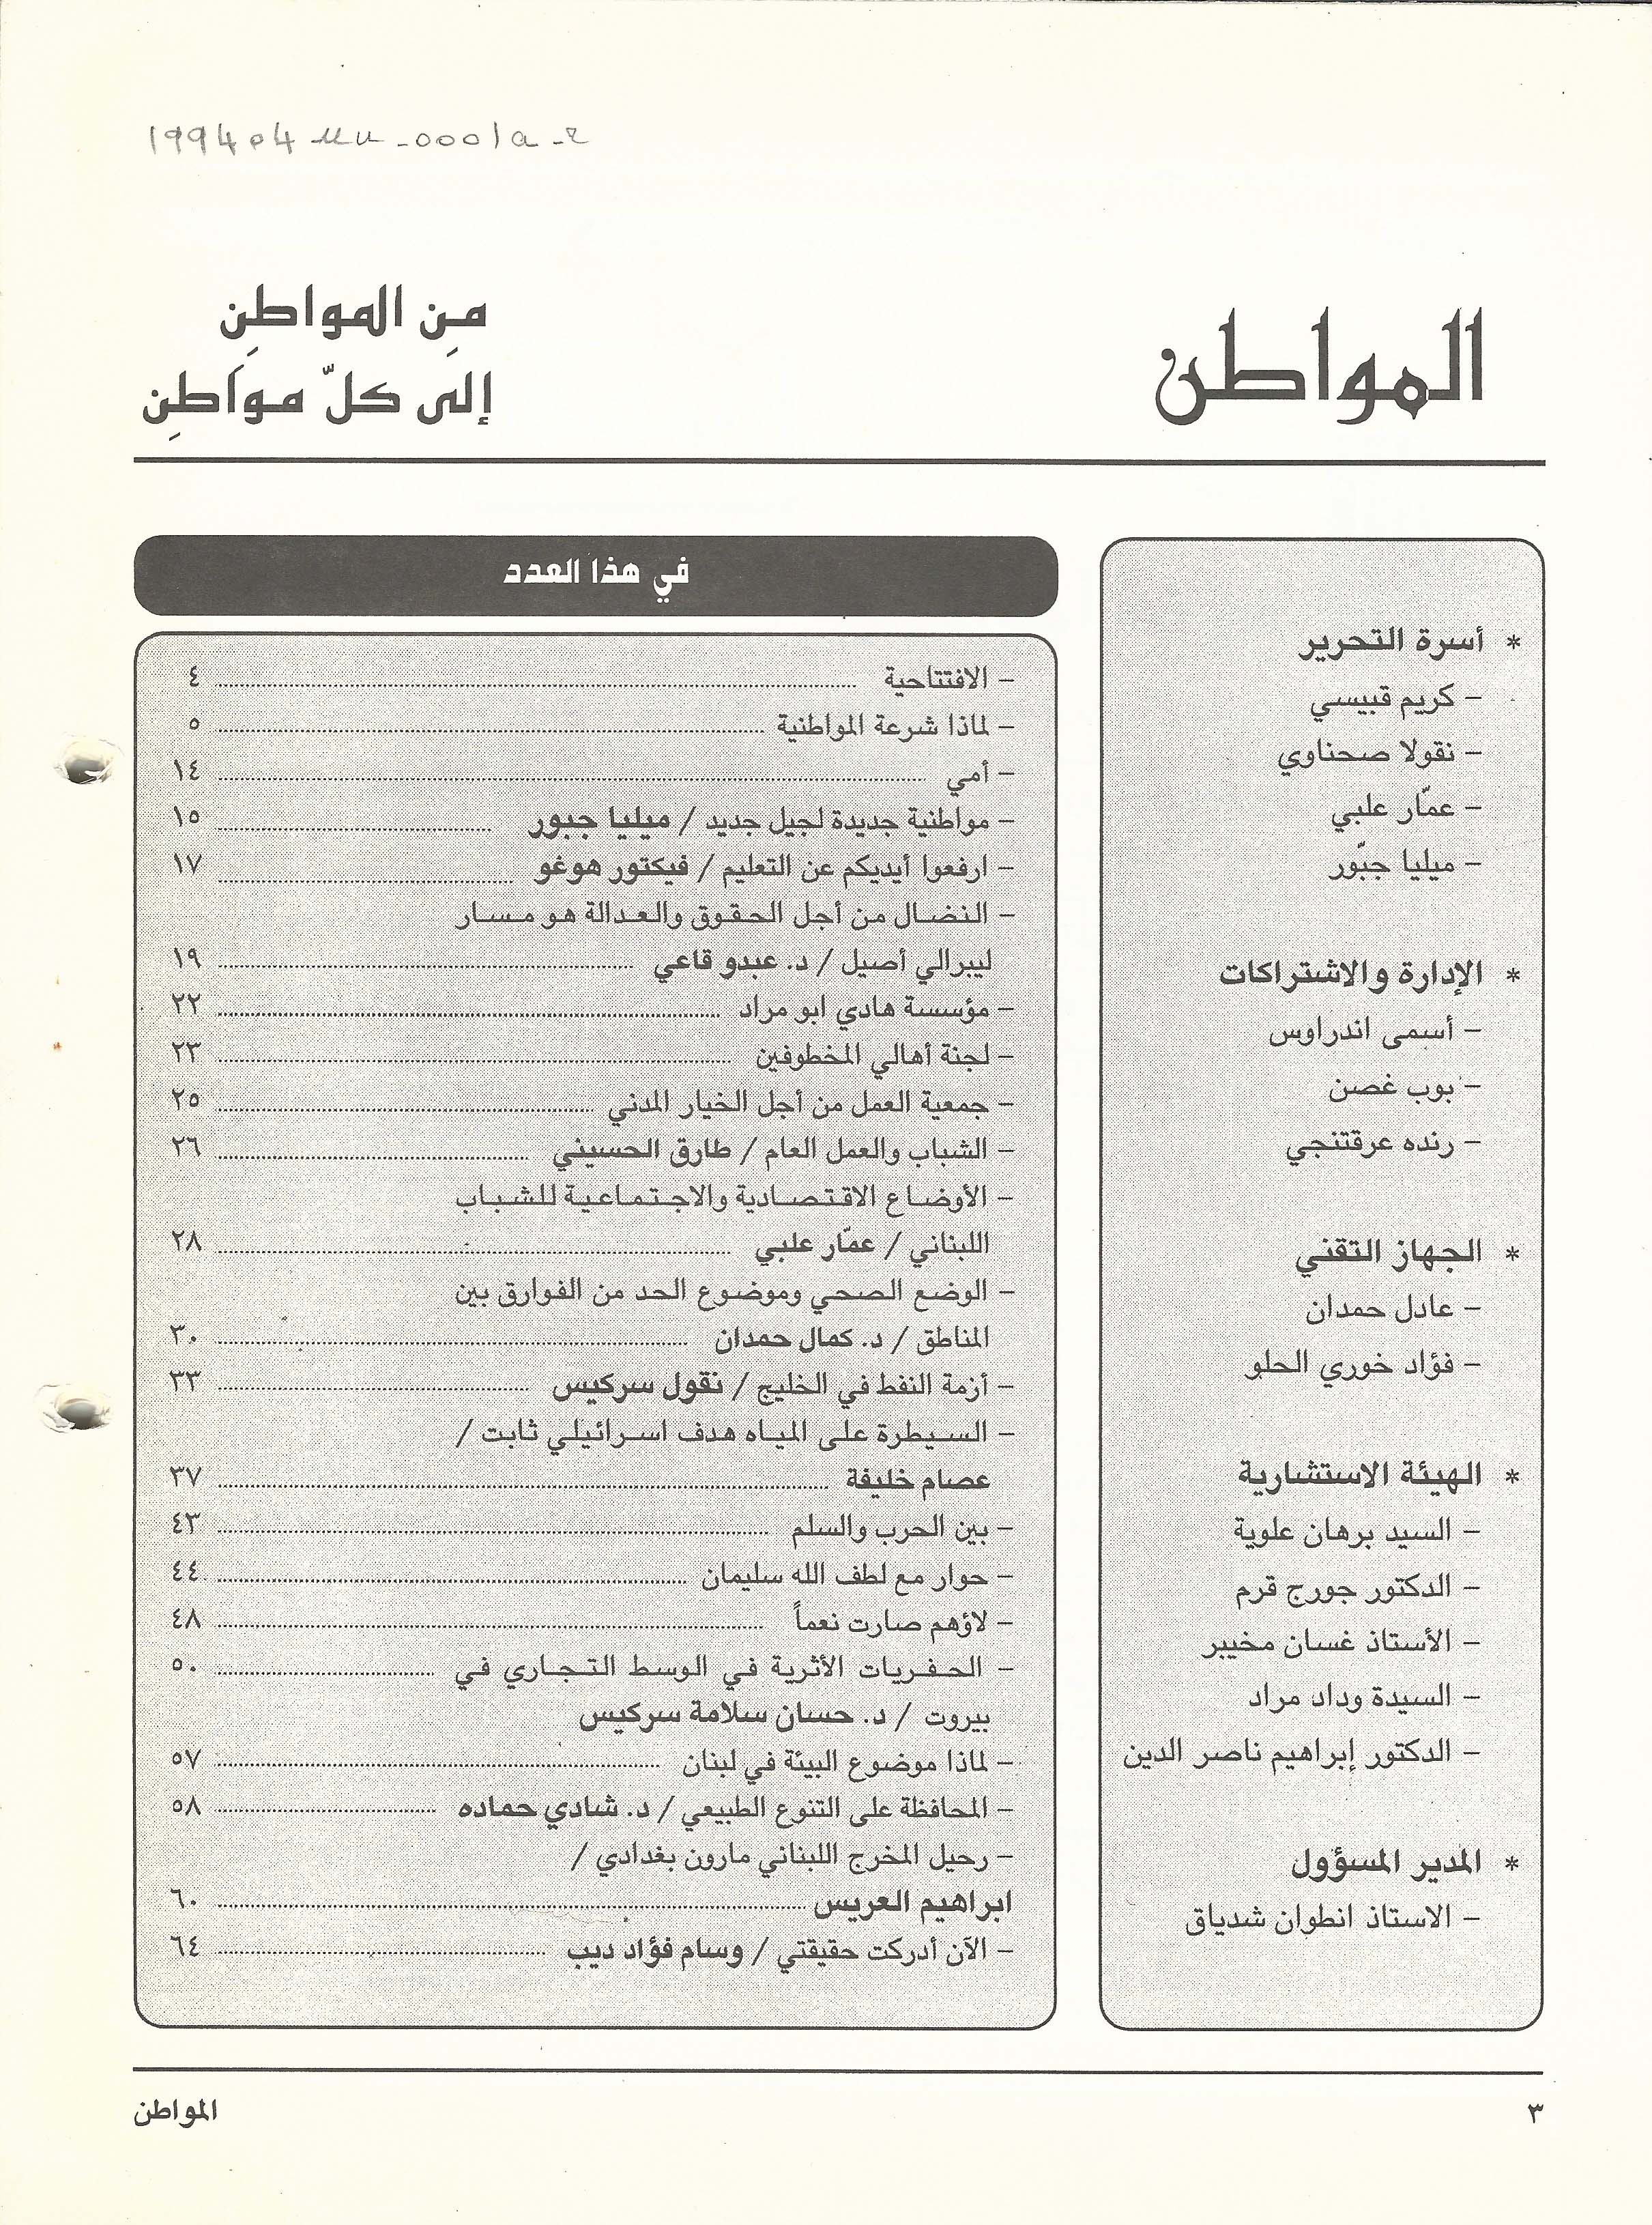 199404 -0001a-2
المواطن
مِن المواطِن
إلى كلّ مواطِن
* أسرة التحرير
– كريم قبيسي
– نقولا صحناوي
– عمّار علبي
– ميليا جبّور
* الإدارة والاشتراكات
– أسمى اندراوس
– بوب غصن
– رنده عرقتنجي
* الجهاز التقني
– عادل حمدان
– فؤاد خوري الحلو
* الهيئة الاستشارية
– السيد برهان علوية
– الدكتور جورج قرم
– الأستاذ غسان مخيبر
– السيدة وداد مراد
– الدكتور إبراهيم ناصر الدين
* المدير المسؤول
– الاستاذ انطوان شدياق
في هذا العدد
– الافتتاحية ........ ٤
– لماذا شرعة المواطنية ........ ٥
– أمي ........ ١٤
– مواطنية جديدة لجيل جديد / ميليا جبور ........ ١٥
– ارفعوا أيديكم عن التعليم / فيكتور هوغو ........ ١٧
– النضال من أجل الحقوق والعدالة هو مسار
ليبرالي أصيل / د. عبدو قاعي ........ ١٩
– مؤسسة هادي ابو مراد ........ ٢٢
– لجنة أهالي المخطوفين ........ ٢٣
– جمعية العمل من أجل الخيار المدني ........ ٢٥
– الشباب والعمل العام / طارق الحسيني ........ ٢٦
– الأوضاع الاقتصادية والاجتماعية للشباب
اللبناني / عمّار علبي ........ ٢٨
– الوضع الصحي وموضوع الحد من الفوارق بين
المناطق / د. كمال حمدان ........ ٣٠
– أزمة النفط في الخليج / نقول سركيس ........ ٣٣
– السيطرة على المياه هدف اسرائيلي ثابت /
عصام خليفة ........ ٣٧
– بين الحرب والسلم ........ ٤٣
– حوار مع لطف الله سليمان ........ ٤٤
– لاؤهم صارت نعماً ........ ٤٨
– الحفريات الأثرية في الوسط التجاري في ........ ٥٠
بيروت / د. حسان سلامة سركيس
– لماذا موضوع البيئة في لبنان ........ ٥٧
– المحافظة على التنوع الطبيعي / د. شادي حماده ........ ٥٨
– رحيل المخرج اللبناني مارون بغدادي /
ابراهيم العريس ........ ٦٠
– الآن أدركت حقيقتي / وسام فؤاد ديب ........ ٦٤
٣
المواطن